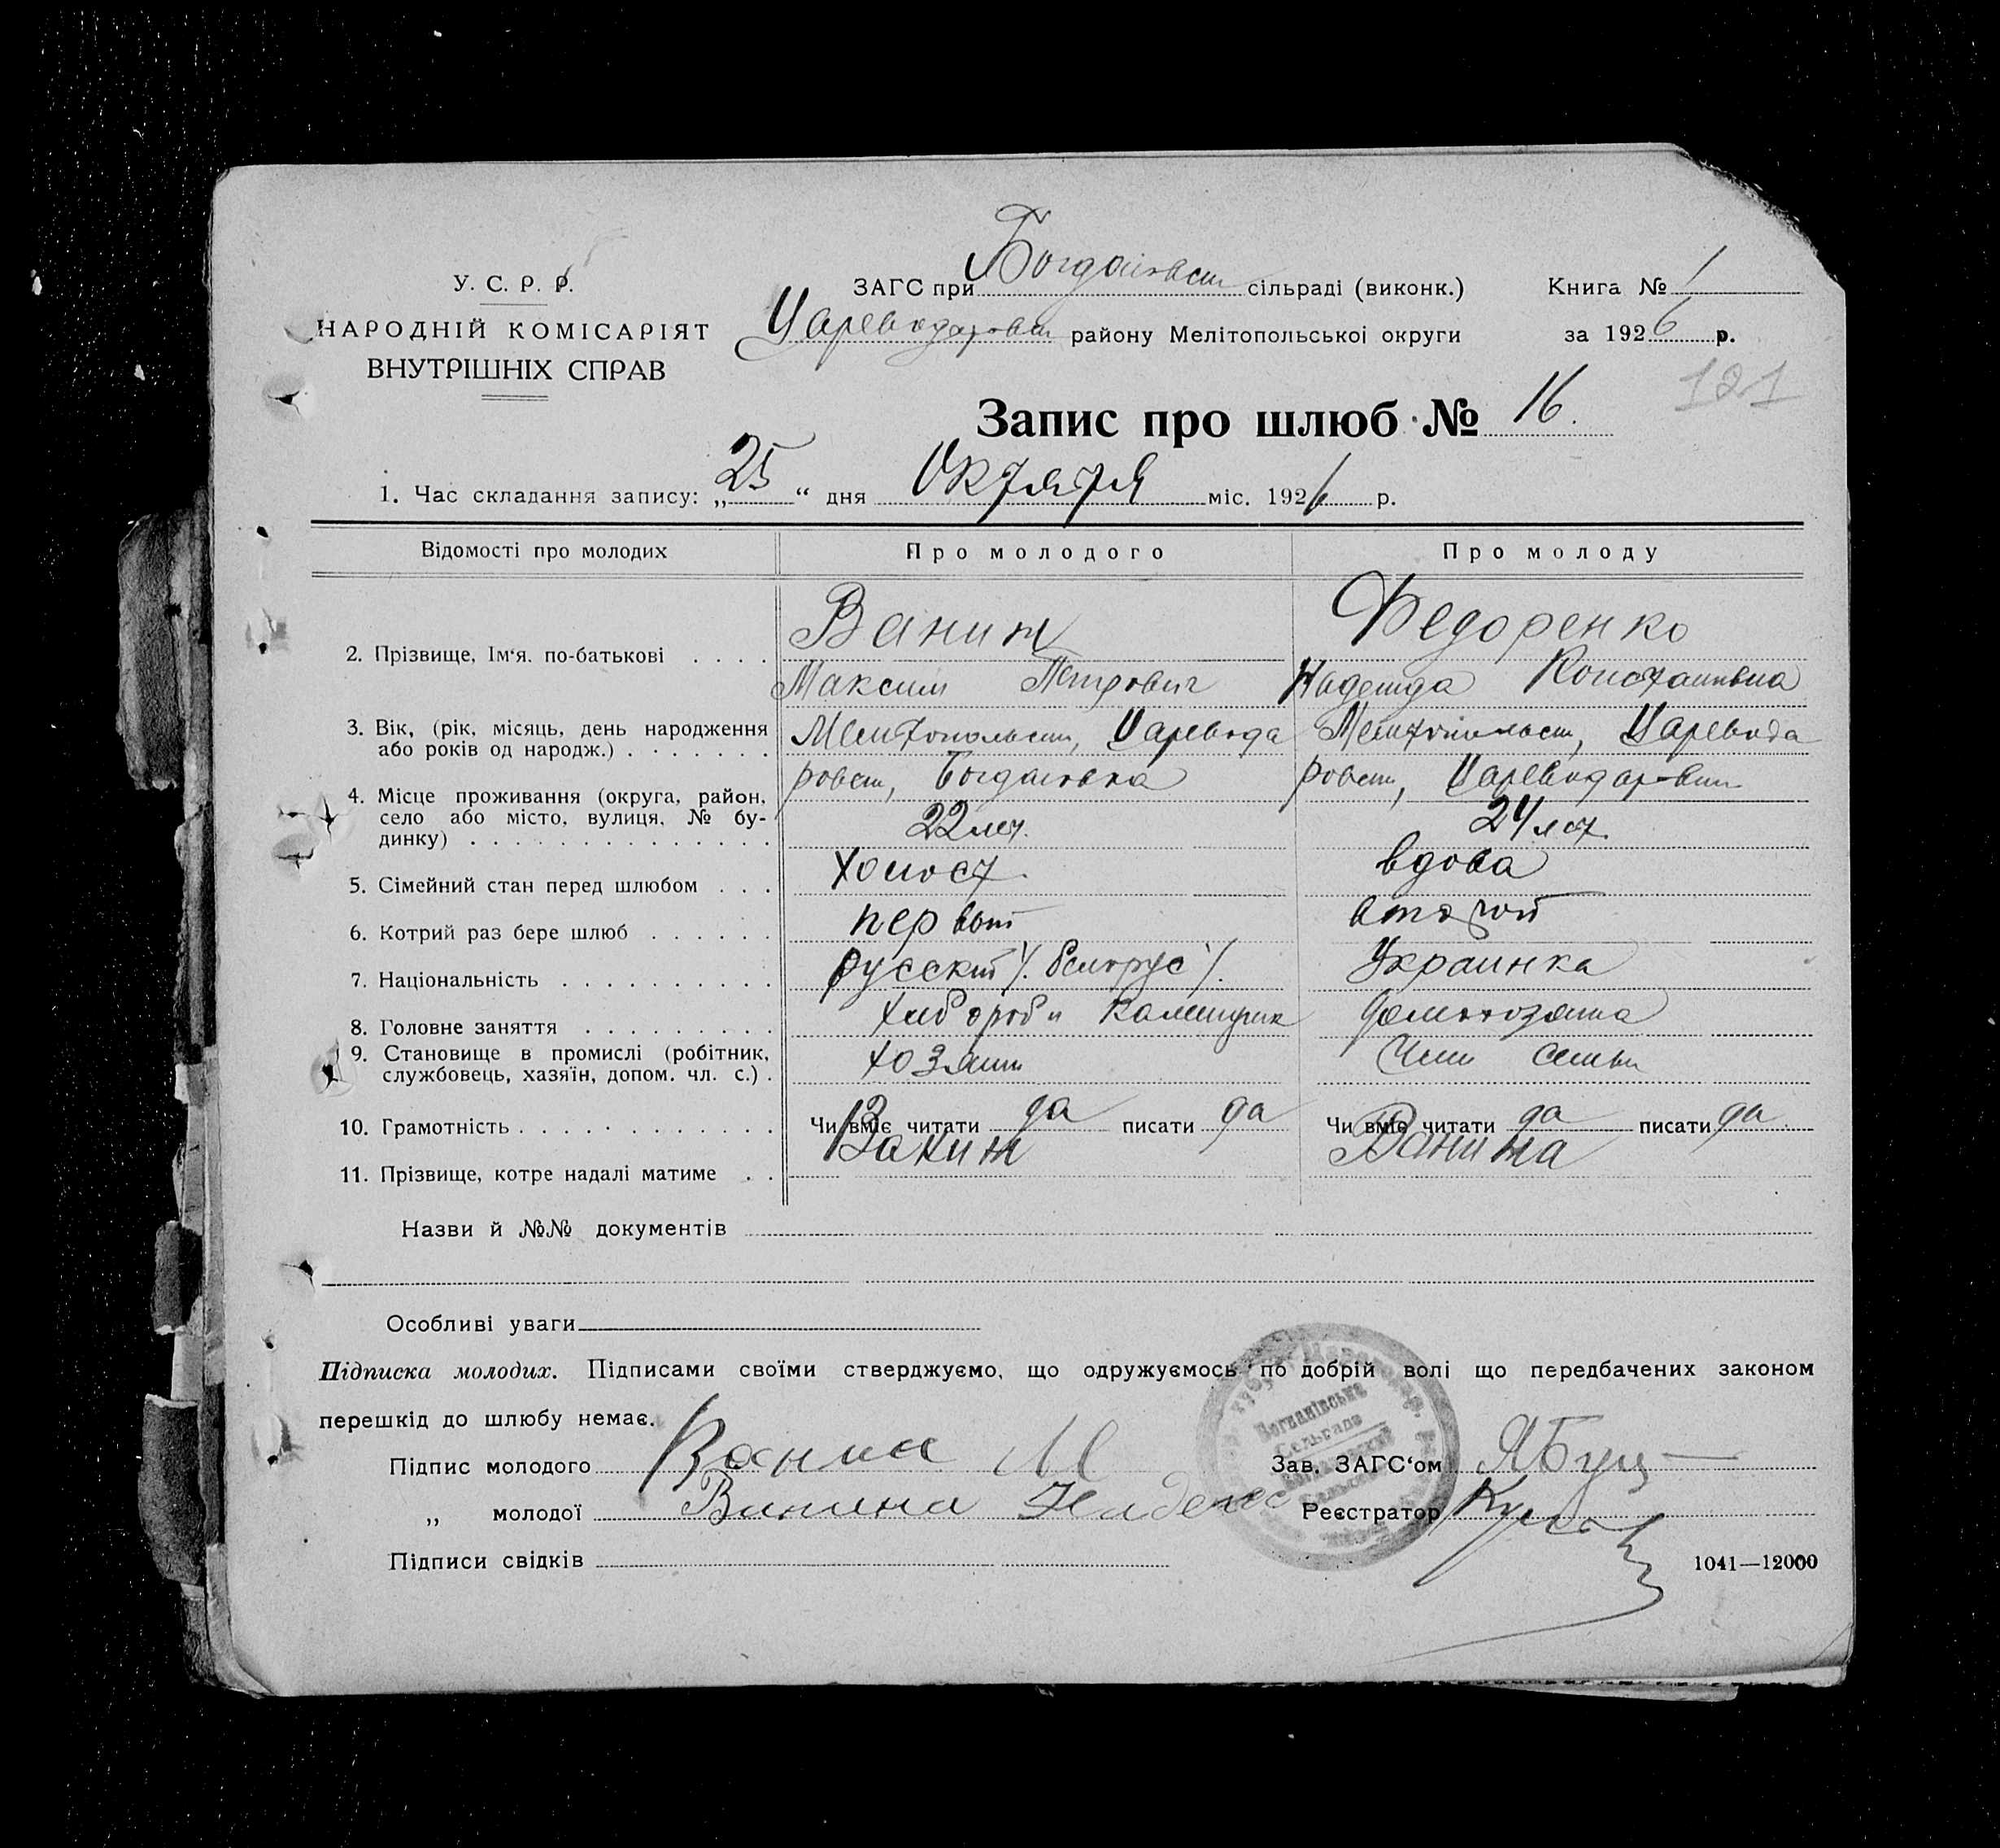 У. С. Р. Р.
НАРОДНІЙ КОМІСАРІЯТ
ВНУТРІШНІХ СПРАВ
ЗАГС при Богдановск сільраді (виконк.)
Цареводаровск району Мелітопольської округи
Книга № 1
за 1926 р.
121
Запис про шлюб № 16.
1. Час складання запису: „25“ дня Октября міс. 1926 р.
Відомості про молодих Про молодого Про молоду
2. Прізвище, Ім‘я. по-батькові . . . . Ванин Федоренко
Максим Петрович Надежда Константиновна
3. Вік, (рік, місяць, день народження або років од народж.) . . . . . . . Мелитопольск, Царевода Мелитопольск, Царевода
ровск, Богдановка ровск, Цареводаровка
4. Місце проживання (округа, район, село або місто, вулиця, № будинку) . . . . . . . . . . . . . . 22 лет. 24 лет.
5. Сімейний стан перед шлюбом . . . холост. вдова
6. Котрий раз бере шлюб . . . . . . первый второй
7. Національність . . . . . . . . . . русский /. белорус /. Украинка
8. Головне заняття . . . . . . . . . хлебороб и Каменщик домохозяйка
9. Становище в промислі (робітник, службовець, хазяїн, допом. чл. с.) . хозяин Член семьи
10. Грамотність . . . . . . . . . . . . Чи вміє читати да писати да Чи вміє читати да писати да
11. Прізвище, котре надалі матиме . . Ванин Ванина
Назви й №№ документів
Особливі уваги
Підписка молодих. Підписами своїми стверджуємо, що одружуємось по добрій волі що передбачених законом
перешкід до шлюбу немає.
Підпис молодого Ванин М
„ молодої Ванина Надежс
Підписи свідків
Зав. ЗАГС‘ом
Реєстратор
Богданівська
Сельрада
1041—12000